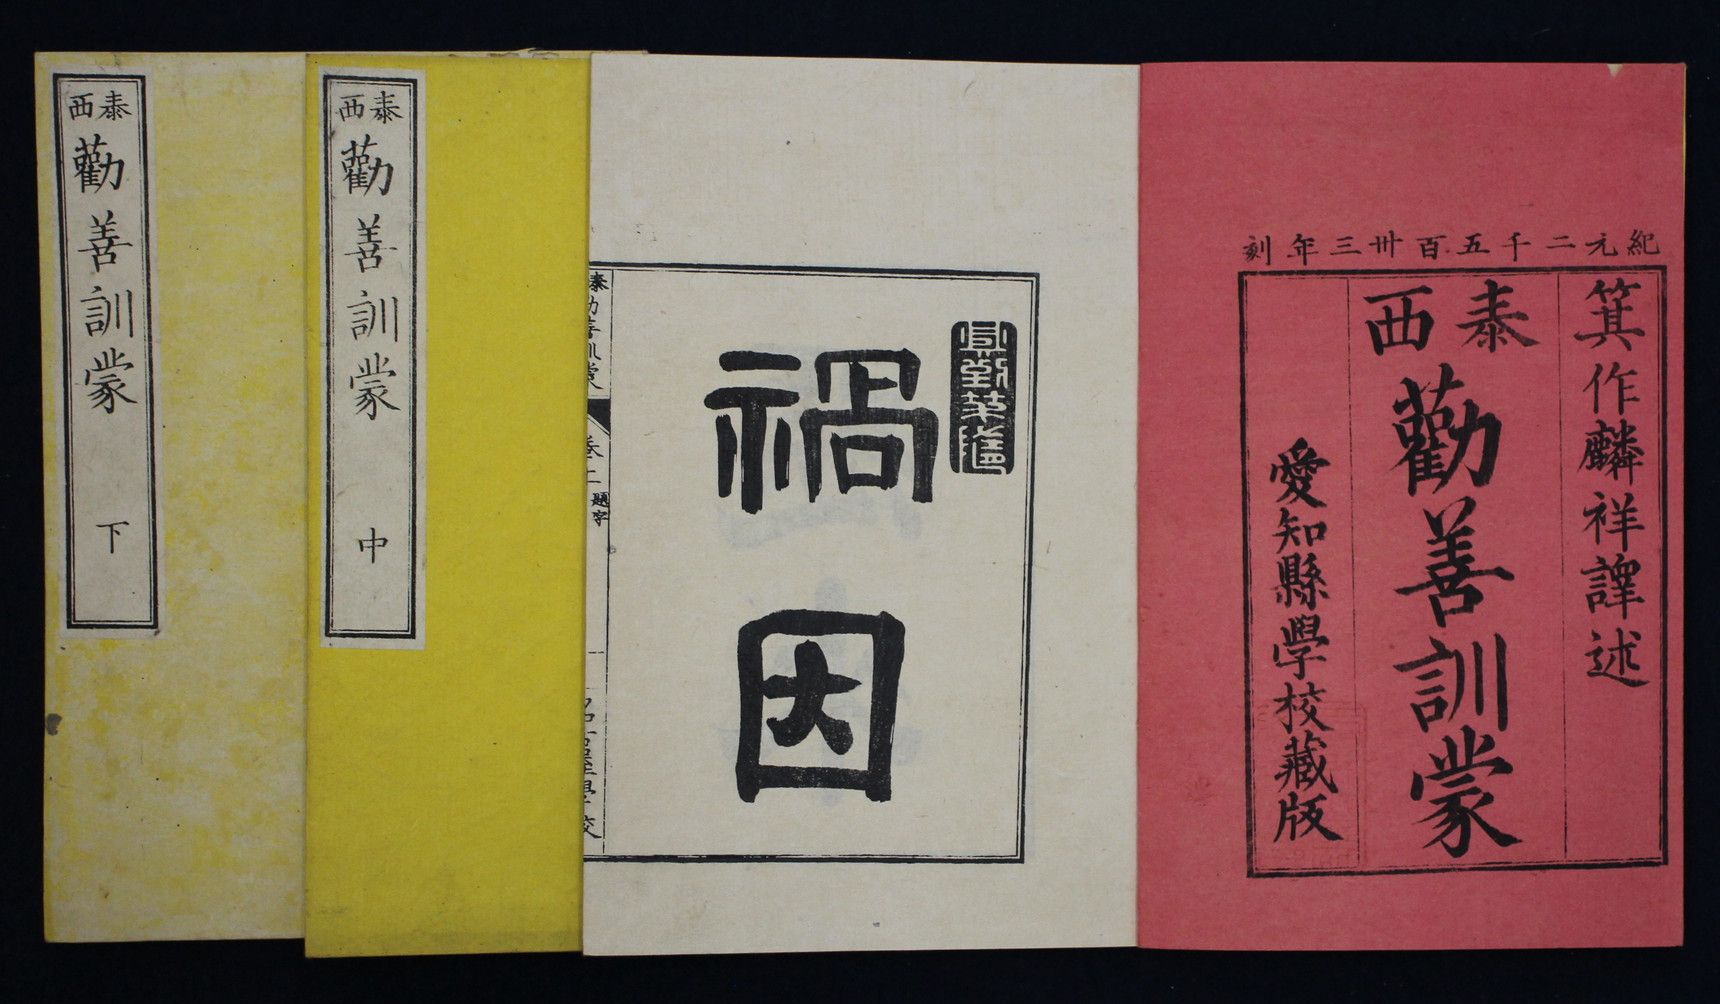 紀元二千五百卅三年刻
箕作麟祥譯述
泰西
勸善訓蒙
愛知縣學校藏版
禍因
題字
泰西
勸善訓蒙
中
泰西
勸善訓蒙
下